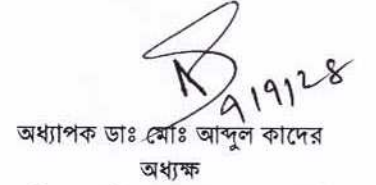 ৭/৭/২৪
অধ্যাপক ডাঃ মোঃ আব্দুল কাদের
অধ্যক্ষ